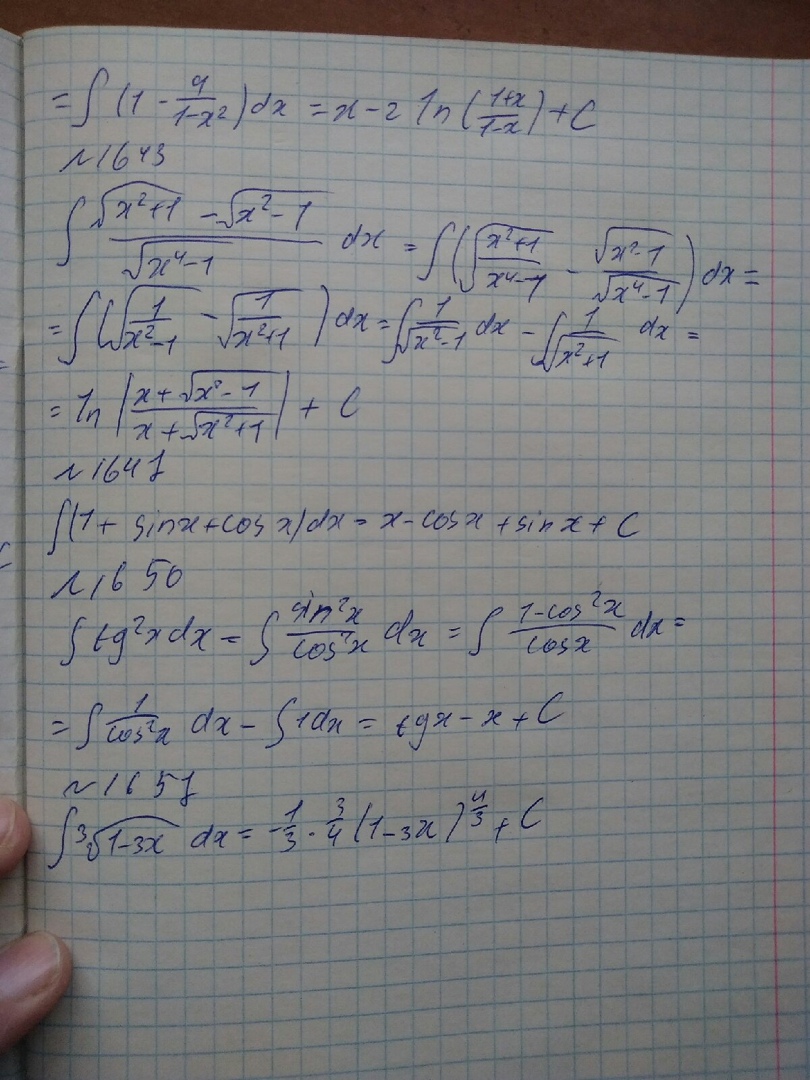 = ∫ (1 - 4/(1-x²)) dx = x - 2 ln((1+x)/(1-x)) + C
~1643
∫ (√(x²+1) - √(x²-1))/√(x⁴-1) dx = ∫ (√((x²+1)/(x⁴-1)) - √(x²-1)/√(x⁴-1)) dx =
= ∫ (√(1/(x²-1)) - √(1/(x²+1))) dx = ∫ 1/√(x²-1) dx - ∫ 1/√(x²+1) dx =
= ln |(x+√(x²-1))/(x+√(x²+1))| + C
~1647
∫(1+ sinx+cos x)dx = x - cosx + sinx + C
~1650
∫ tg²x dx = ∫ sin²x/cos²x dx = ∫ (1-cos²x)/cosx dx =
= ∫ 1/cos²x dx - ∫ 1dx = tgx - x + C
~1657
∫ ³√(1-3x) dx = -1/3 · 3/4 (1-3x)^(4/3) + C